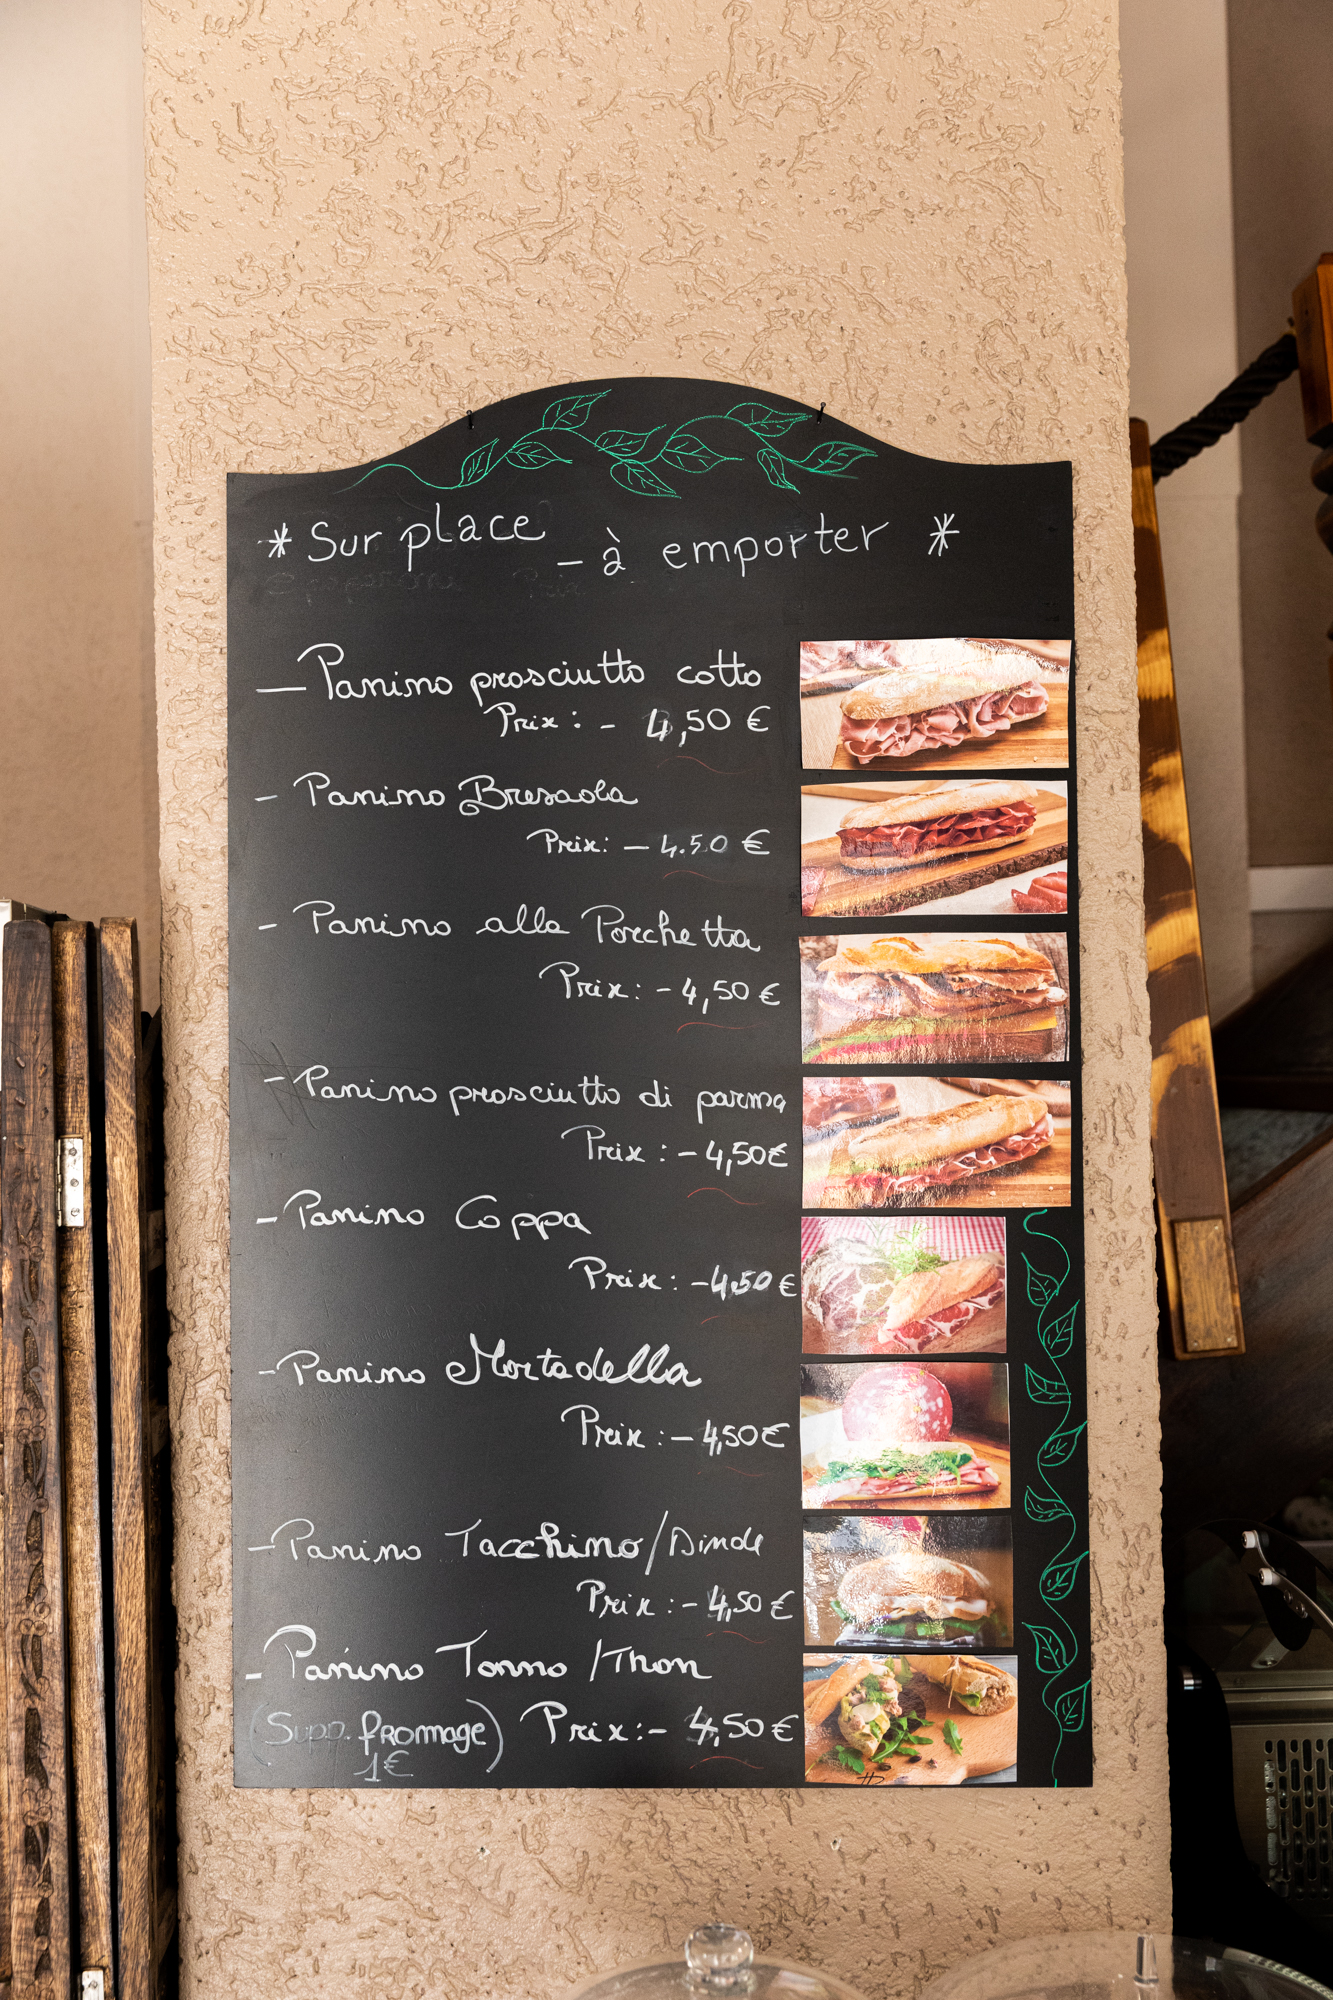 * Sur place - à emporter *
- Panino prosciutto cotto
Prix : - 4,50 €
- Panino Bresaola
Prix: - 4.50 €
- Panino alla Porchetta
Prix: - 4,50 €
- Panino prosciutto di parma
Prix : - 4,50€
- Panino Coppa
Prix: - 4,50 €
- Panino Mortadella
Prix : - 4,50€
- Panino Tacchino/Dinde
Prix : - 4,50 €
- Panino Tonno /Thon
(Supp. fromage) Prix: - 4,50 €
1€